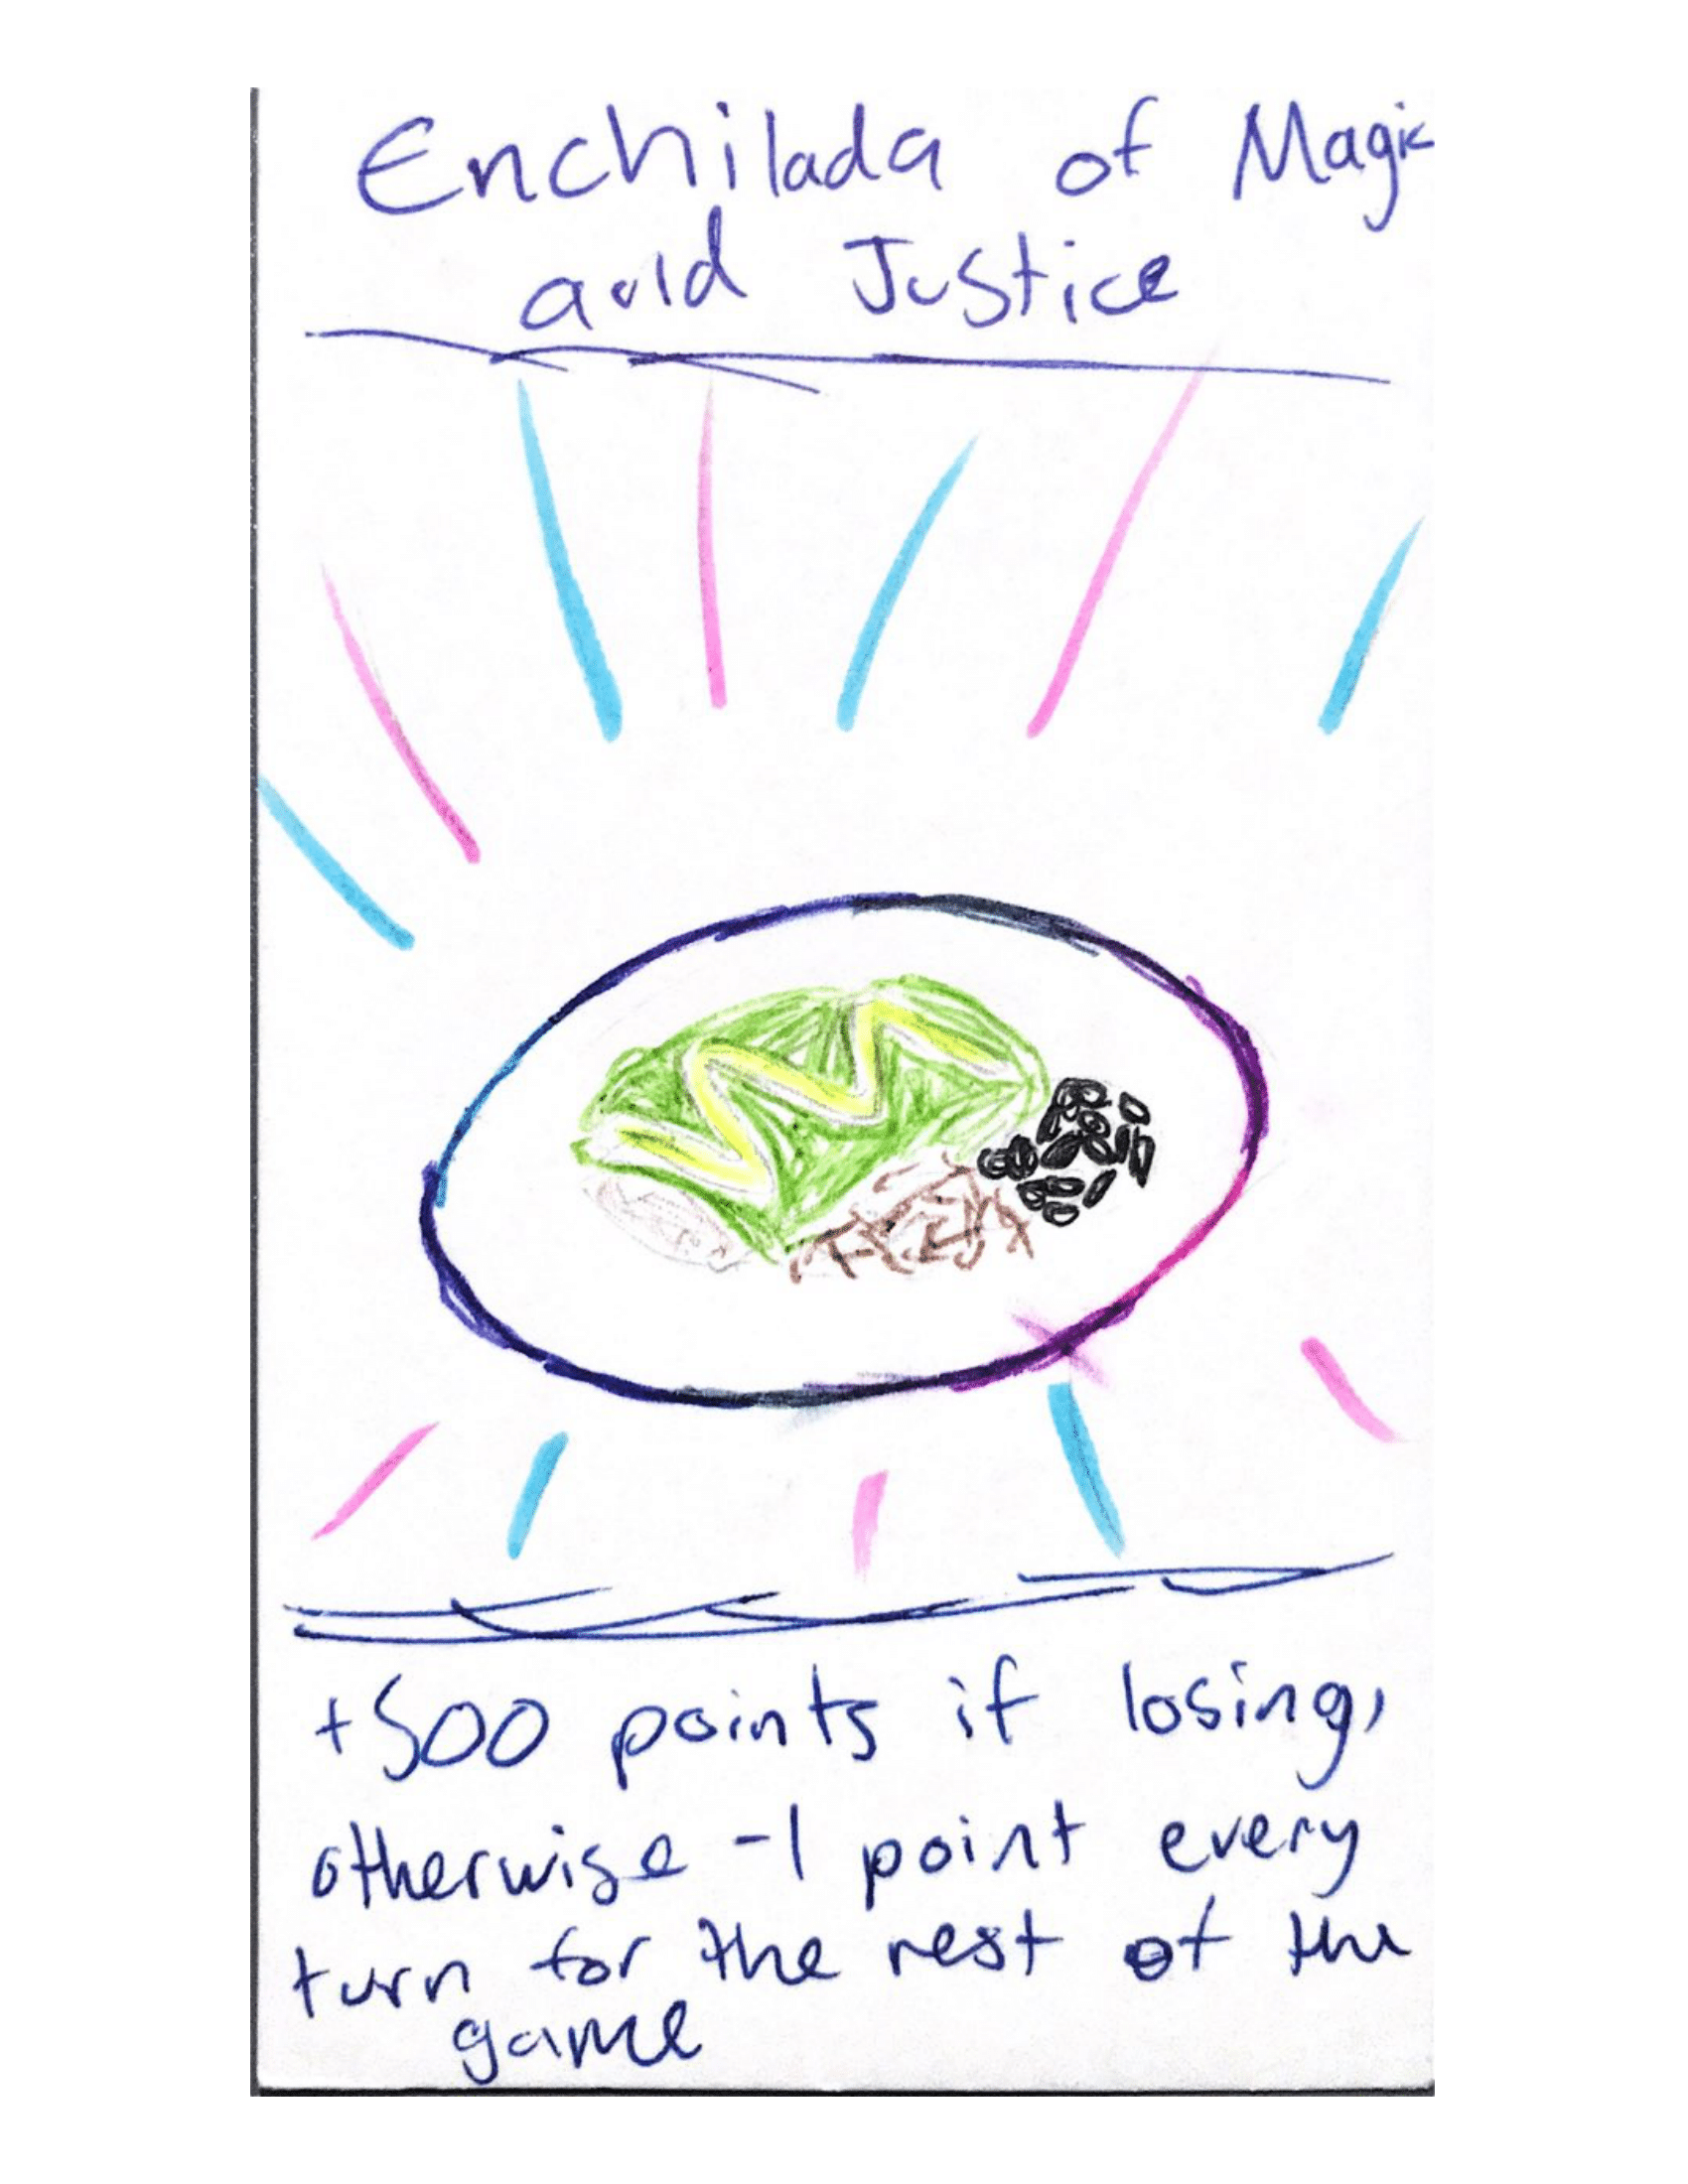 Enchilada of Magic
and Justice
+500 points if losing,
otherwise -1 point every
turn for the rest of the
game